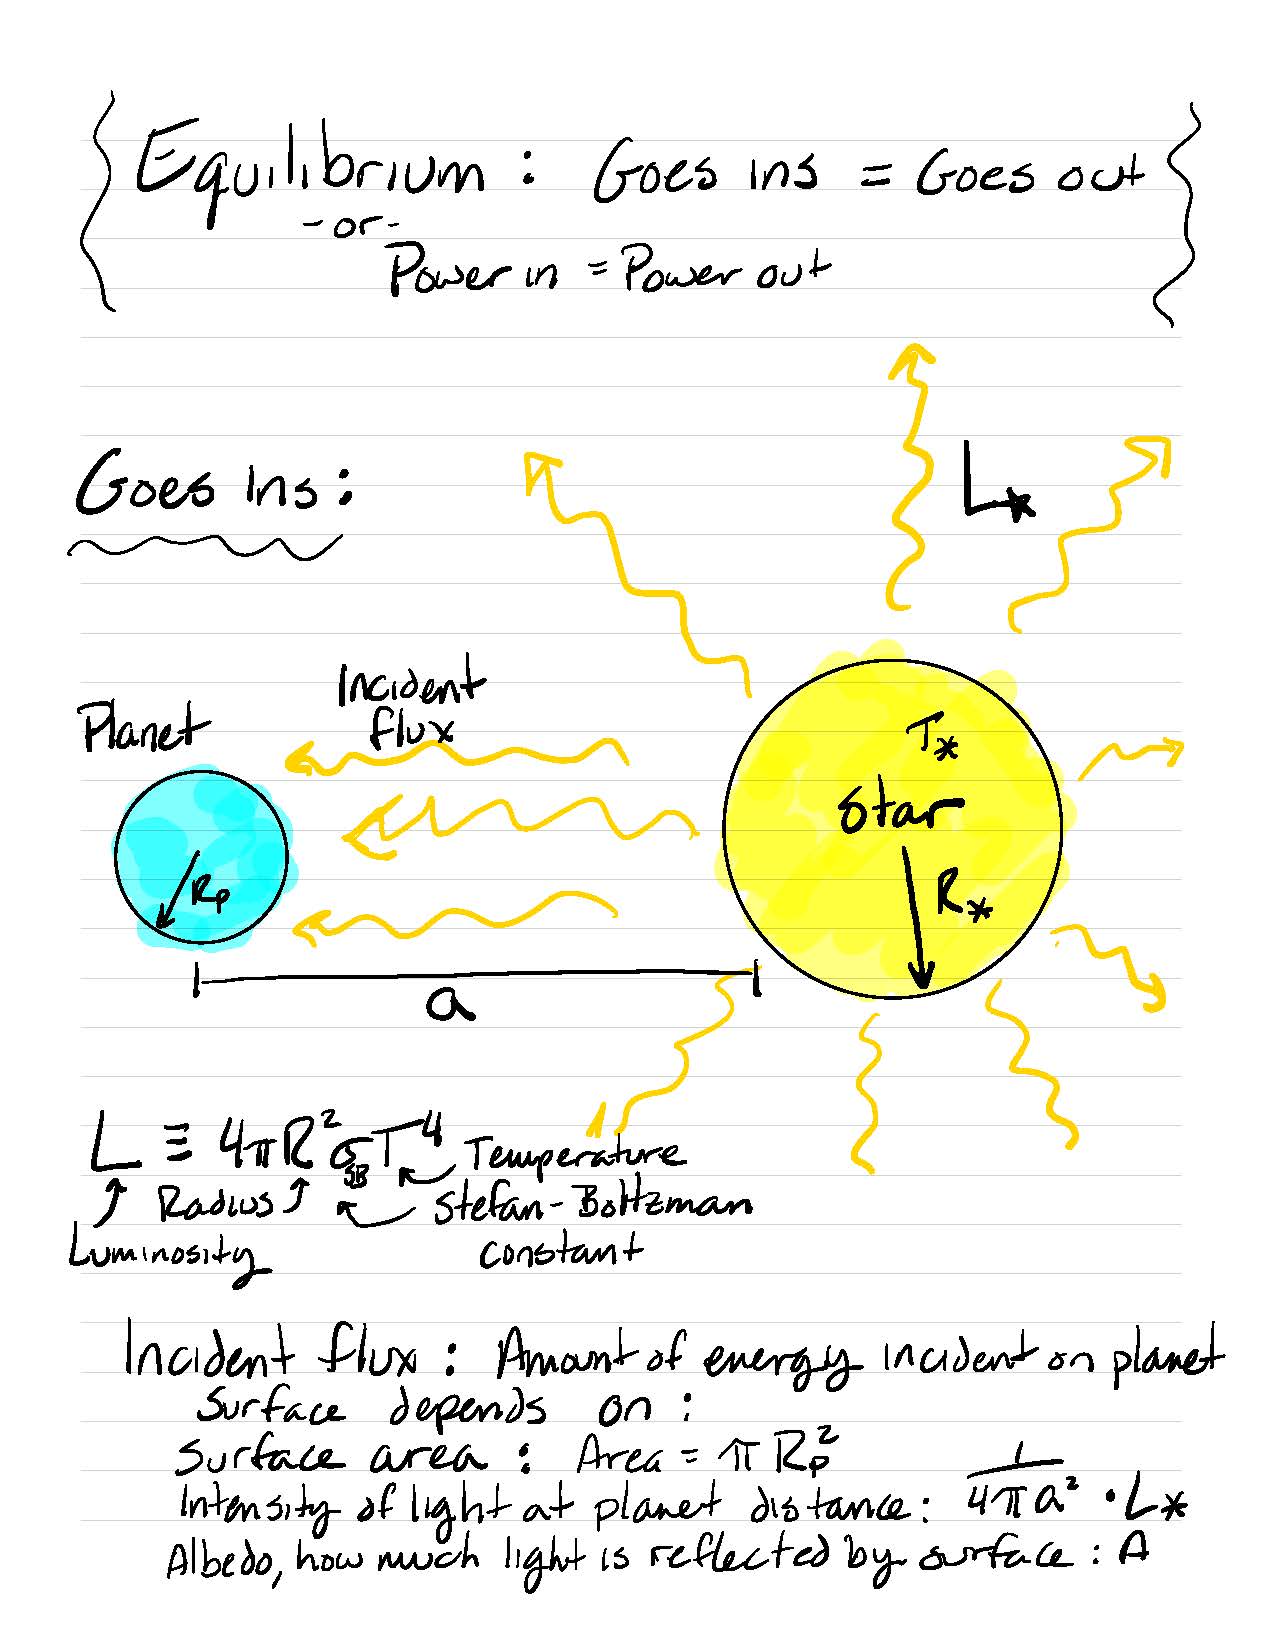 Equilibrium : Goes ins = Goes out
-or-
Power in = Power out
Goes Ins :
L*
Incident
flux
Planet
T*
Star
Rp
R*
a
L ≡ 4πR²σ_SB T⁴ Temperature
Radius Stefan-Boltzman
Luminosity constant
Incident flux : Amount of energy incident on planet
Surface depends on :
Surface area : Area = πRp²
Intensity of light at planet distance : 1/4πa² · L*
Albedo, how much light is reflected by surface : A